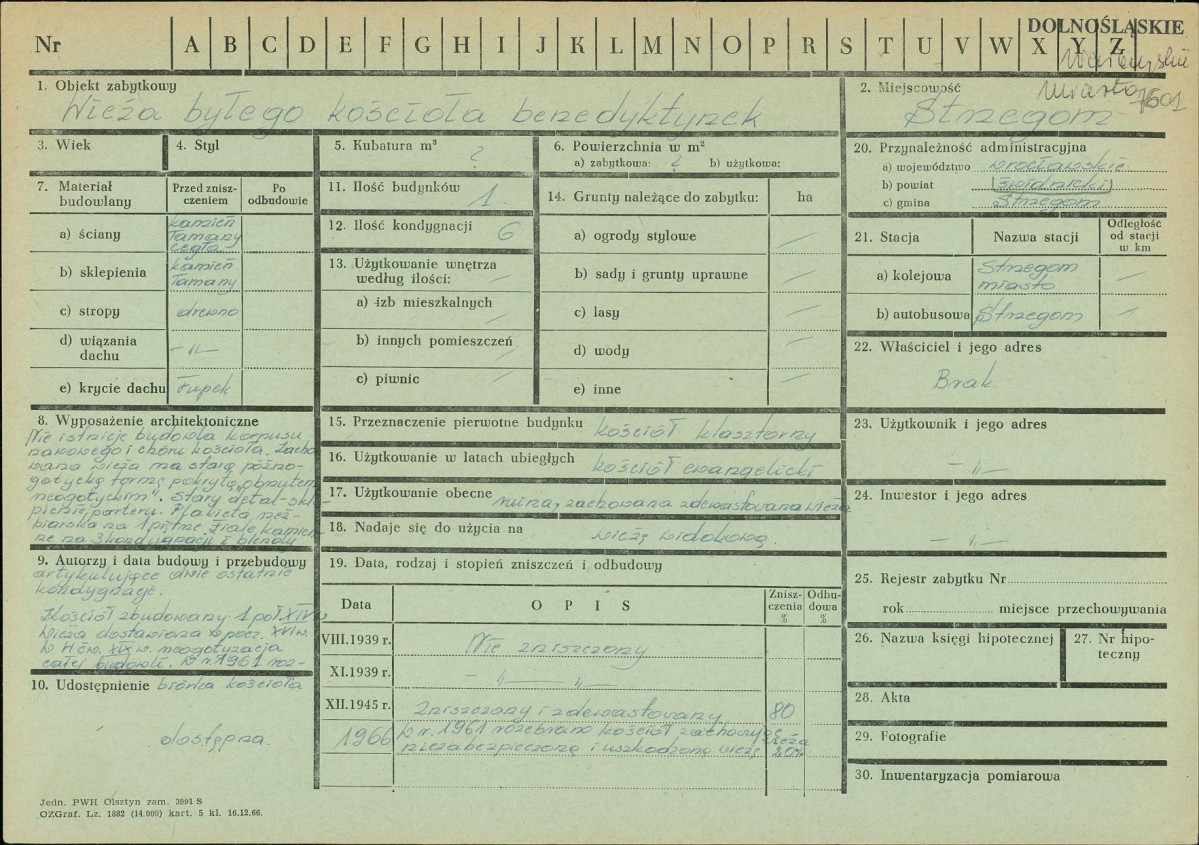 DOLNOŚLĄSKIE
Nr A B C D E F G H I J K L M N O P R S T U V W X Y Z
1. Obiekt zabytkowy
Wieża byłego kościoła benedyktynek
2. Miejscowość
Strzegom
miasto
3. Wiek
4. Styl
5. Kubatura m³ ?
6. Powierzchnia w m²
a) zabytkowa: ? b) użytkowa:
7. Materiał budowlany
Przed znisz-
czeniem
Po
odbudowie
a) ściany kamień
łamany
cegła
b) sklepienia kamień
łamany
c) stropy drewno
d) wiązania
dachu -"-
e) krycie dachu łupek
11. Ilość budynków 1
12. Ilość kondygnacji 6
13. Użytkowanie wnętrza
według ilości: —
a) izb mieszkalnych —
b) innych pomieszczeń —
c) piwnic —
14. Grunty należące do zabytku: ha
a) ogrody stylowe —
b) sady i grunty uprawne —
c) lasy —
d) wody —
e) inne —
20. Przynależność administracyjna
a) województwo wrocławskie
b) powiat (świdnicki)
c) gmina Strzegom
21. Stacja
Nazwa stacji
Odległość
od stacji
w km
a) kolejowa Strzegom
miasto —
b) autobusowa Strzegom —
22. Właściciel i jego adres
Brak
8. Wyposażenie architektoniczne
Nie istnieje budowla korpusu
nawowego i chóru kościoła. Zacho
wana wieża ma starą późno-
gotycką formę pokrytą "obmutem
neogotyckim". Stary detal-skle
pienie parteru. Plakieta rzeź-
biarska na 1 piętrze. Fiale kamien
ne na 3 kondygnacji i blendy
9. Autorzy i data budowy i przebudowy
artykułujące dwie ostatnie
kondygnacje.
Kościół zbudowany 1 poł XIV w
Wieża dostawiona w pocz. XVI w.
W II ćw. XIX w. neogotyzacja
całej budowli. W r. 1961 roz-
10. Udostępnienie biórka kościoła
dostępna.
15. Przeznaczenie pierwotne budynku kościół klasztorny
16. Użytkowanie w latach ubiegłych kościół ewangelicki
17. Użytkowanie obecne ruina, zachowana zdewastowana wieża
18. Nadaje się do użycia na wieżę widokową.
19. Data, rodzaj i stopień zniszczeń i odbudowy
Data
OPIS
Znisz-
czenia
%
Odbu-
dowa
%
VIII.1939 r. Nie zniszczony
XI.1939 r. - " — " -
XII.1945 r. Zniszczony i zdewastowany 80
1966 W r. 1961 rozebrano kościół zachowując wieża
niezabezpieczoną i uszkodzoną wieżę 20%
23. Użytkownik i jego adres
- " -
24. Inwestor i jego adres
- " -
25. Rejestr zabytku Nr
rok miejsce przechowywania
26. Nazwa księgi hipotecznej
27. Nr hipo-
teczny
28. Akta
29. Fotografie
30. Inwentaryzacja pomiarowa
Jedn. PWH Olsztyn zam. 3991 S
OZGraf. Lz. 1882 (14.000) kart. 5 kl. 16.12.66.